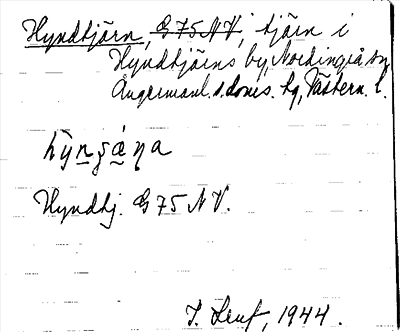 Hyndtjärn, G75NV, tjärn i
Hyndtjärns by, Nordingrå sn
Ångermanl. s. doms. hg, Västern. l.
Hyndtj. G 75 N V.
1944.